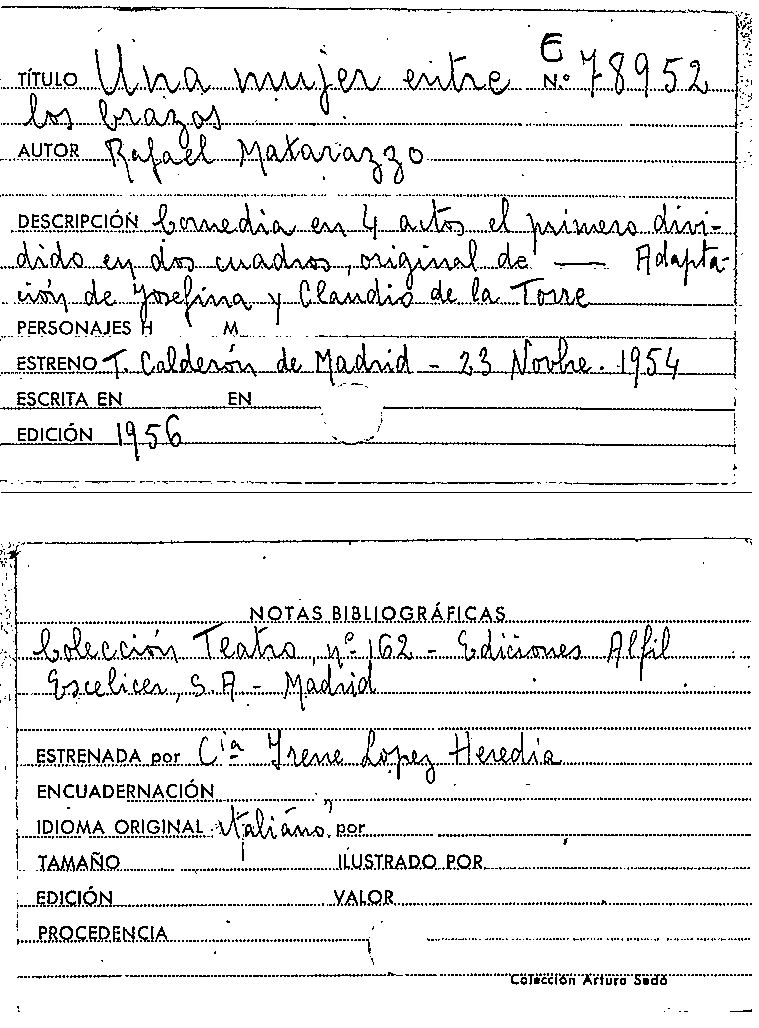 TÍTULO Una mujer entre E N.º 78952
los brazos
AUTOR Rafael Matarazzo
DESCRIPCIÓN Comedia en 4 actos el primero divi-
dido en dos cuadros, original de —— Adapta-
ción de Josefina y Claudio de la Torre
PERSONAJES H M
ESTRENO T. Calderón de Madrid - 23 Novbre. 1954
ESCRITA EN EN
EDICIÓN 1956
NOTAS BIBLIOGRÁFICAS
Colección Teatro, nº 162 - Ediciones Alfil
Escelicer, S.A - Madrid
ESTRENADA por Cía Irene Lopez Heredia
ENCUADERNACIÓN
IDIOMA ORIGINAL Italiano, por
TAMAÑO ILUSTRADO POR
EDICIÓN VALOR
PROCEDENCIA
Colección Arturo Sedó